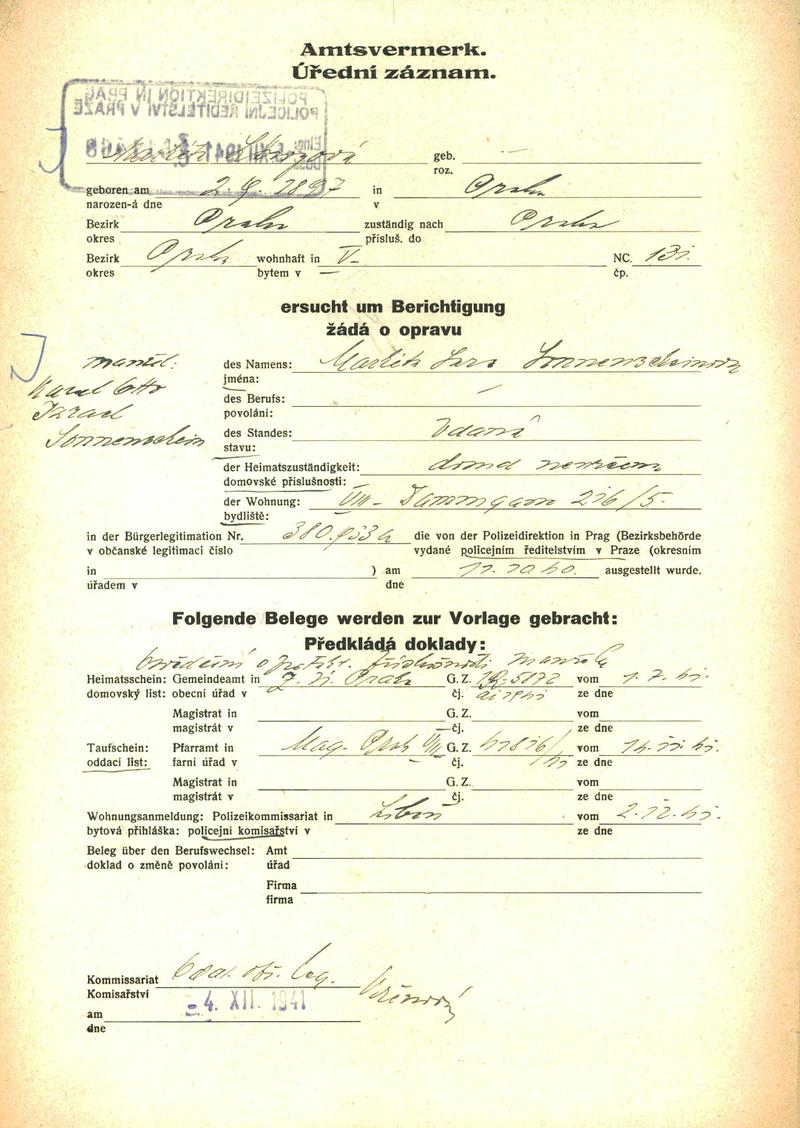 Amtsvermerk.
Úřední záznam.
POLIZEIDIREKTION IN PRAG
POLICEJNÍ ŘEDITELSTVÍ V PRAZE
geb. —
roz.
geboren am 2. 9. 1897 in Praha
narozen-á dne v
Bezirk Praha zuständig nach Praha
okres přísluš. do
Bezirk Praha wohnhaft in V– NC. 131.
okres bytem v — čp.
ersucht um Berichtigung
žádá o opravu
manžel: des Namens: Markéta Sara Sonnenscheinová
Karel Otto jména:
Israel des Berufs: —
povolání:
Sonnenschein des Standes: vdaná
stavu:
der Heimatszuständigkeit:
domovské příslušnosti:
der Wohnung: VIII – 216/5.
bydliště:
in der Bürgerlegitimation Nr. die von der Polizeidirektion in Prag (Bezirksbehörde
v občanské legitimaci číslo vydané policejním ředitelstvím v Praze (okresním
in ) am 11.10.40. ausgestellt wurde.
úřadem v dne
Folgende Belege werden zur Vorlage gebracht:
Předkládá doklady:
manžela
Heimatsschein: Gemeindeamt in Praha G. Z. vom 1. 7. 41.
domovský list: obecní úřad v čj. ze dne
Magistrat in G. Z. vom
magistrát v čj. ze dne
Taufschein: Pfarramt in Mag. Praha VIII G. Z. vom
oddací list: farní úřad v čj. ze dne
Magistrat in G. Z. vom
magistrát v čj. ze dne
Wohnungsanmeldung: Polizeikommissariat in Libeň vom 2. 12. 41.
bytová přihláška: policejní komisařství v ze dne
Beleg über den Berufswechsel: Amt
doklad o změně povolání: úřad
Firma
firma
Kommissariat Odd. obč. leg.
Komisařství
am -4. XII. 1941
dne